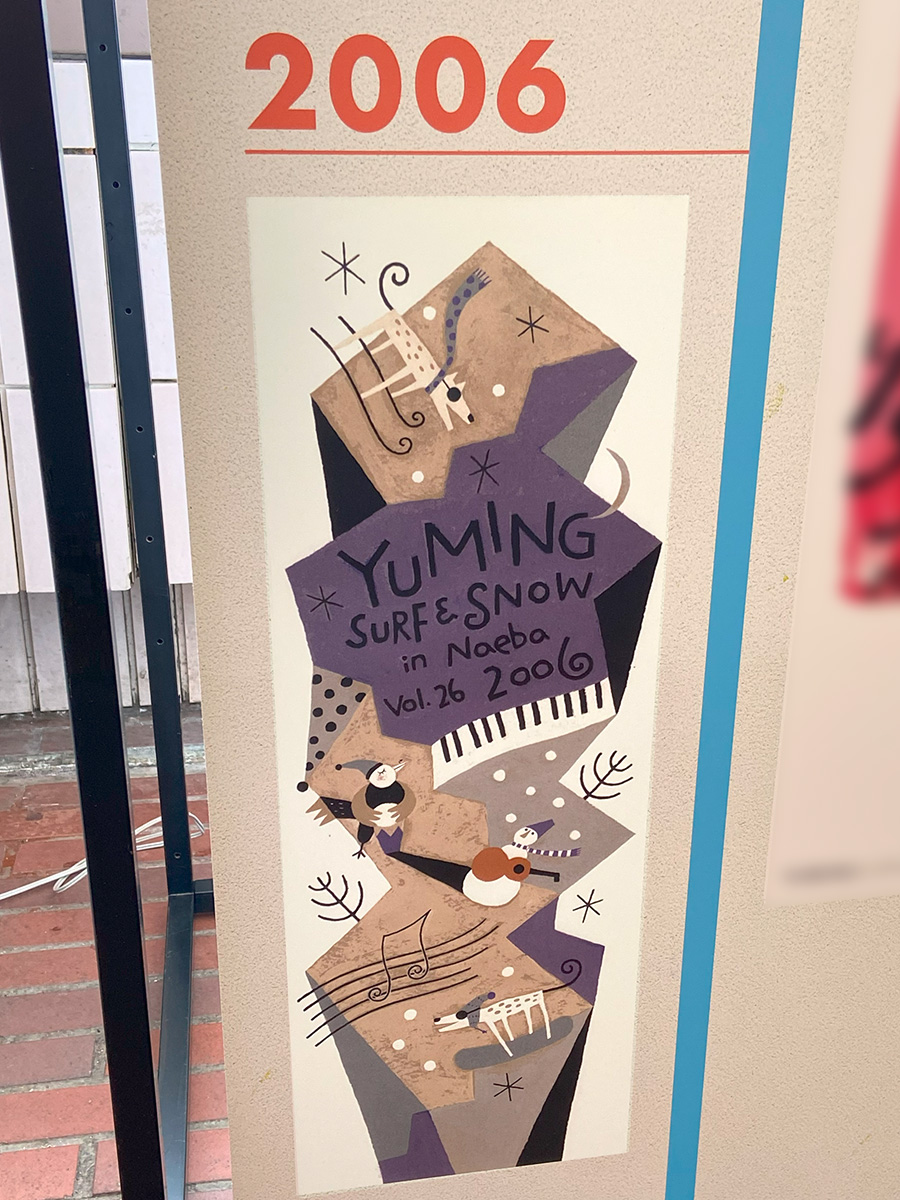 2006
YUMING
SURF & SNOW
in Naeba
Vol. 26 2006